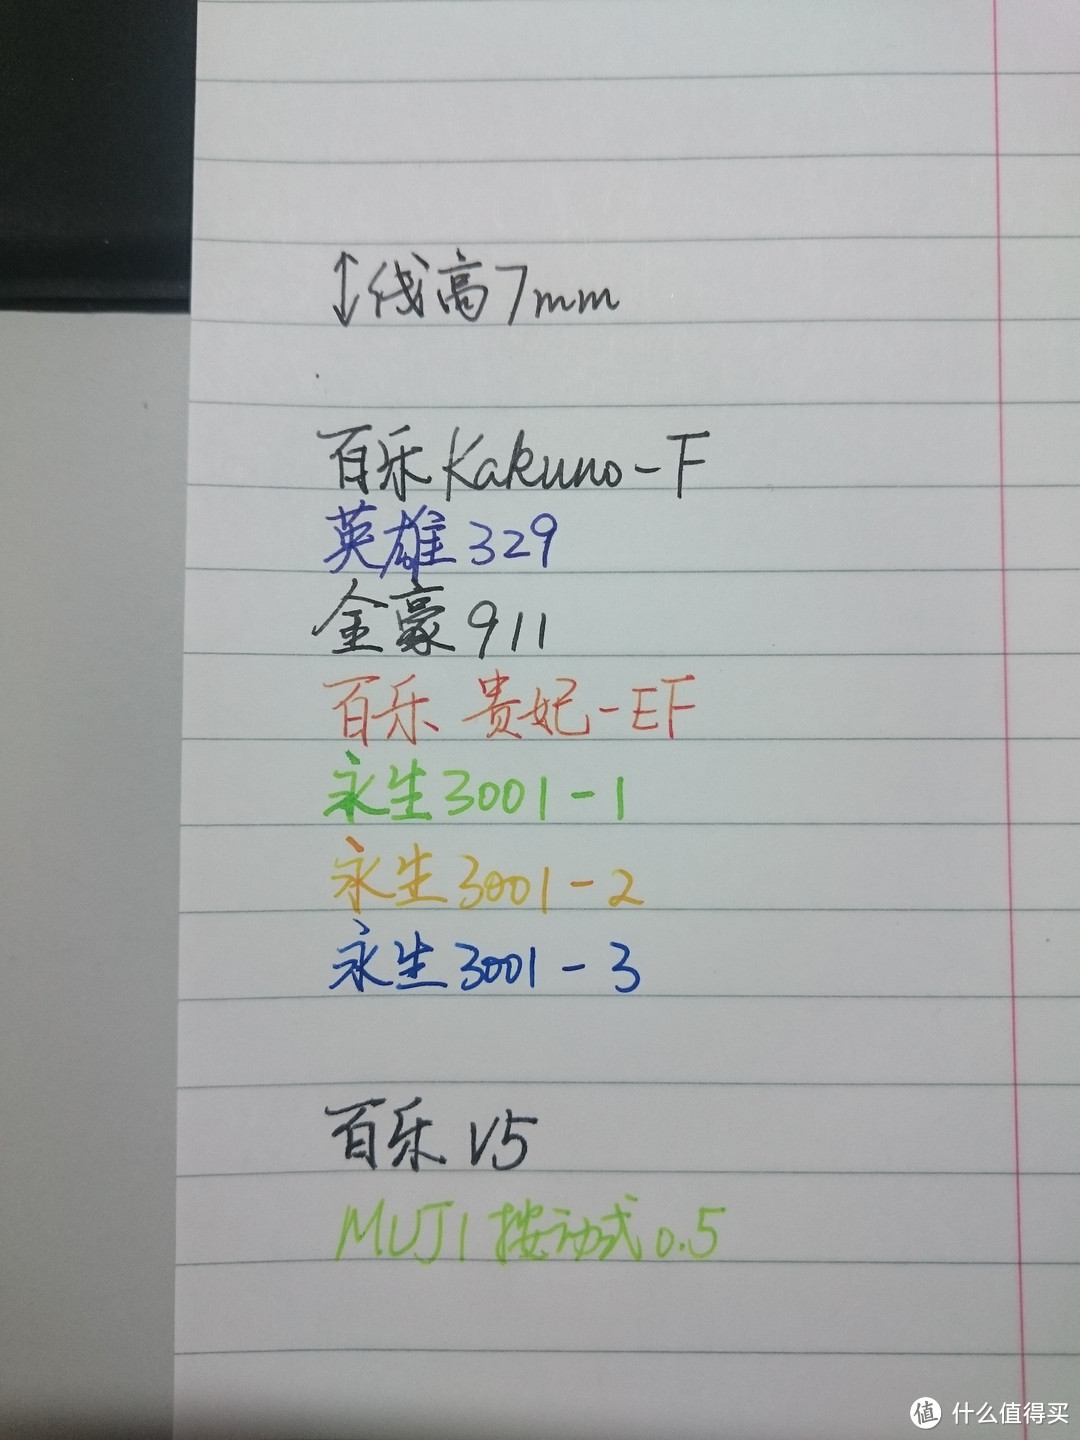 ↕线高7mm
百乐Kakuno-F
英雄329
金豪911
百乐 贵妃-EF
永生3001-1
永生3001-2
永生3001-3
百乐 V5
MUJI 按动式0.5
值 什么值得买